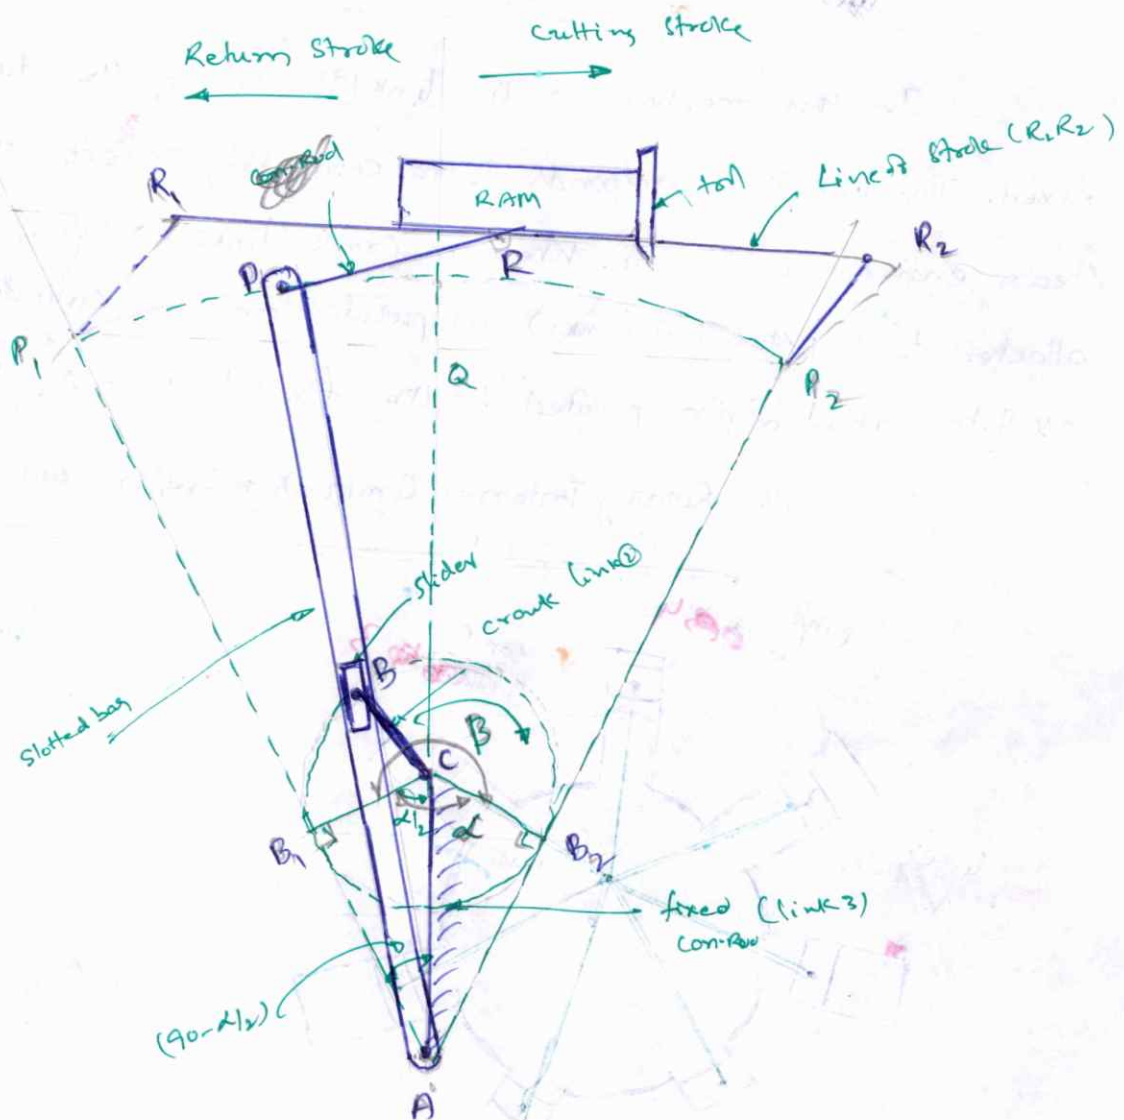 Return Stroke
Cutting Stroke
R1
Con-Rod
RAM
tool
Line of Stroke (R1R2)
R2
P
R
P1
Q
P2
Slider
Crank link②
B
Slotted bar
β
C
α/2
α
B1
B2
fixed (link3)
Con-Rod
(90-α/2)
A